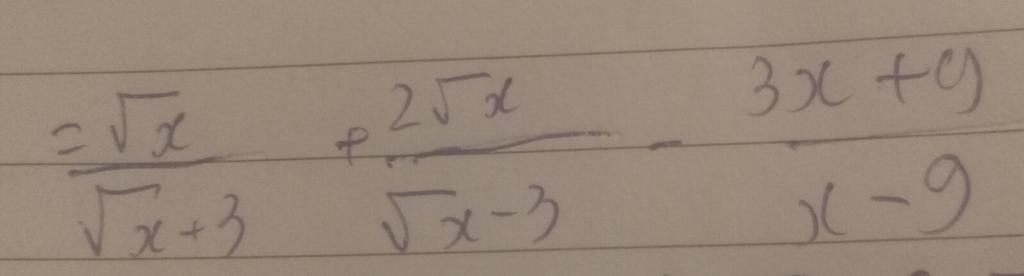 = √x/(√x+3) + 2√x/(√x-3) - (3x+9)/(x-9)